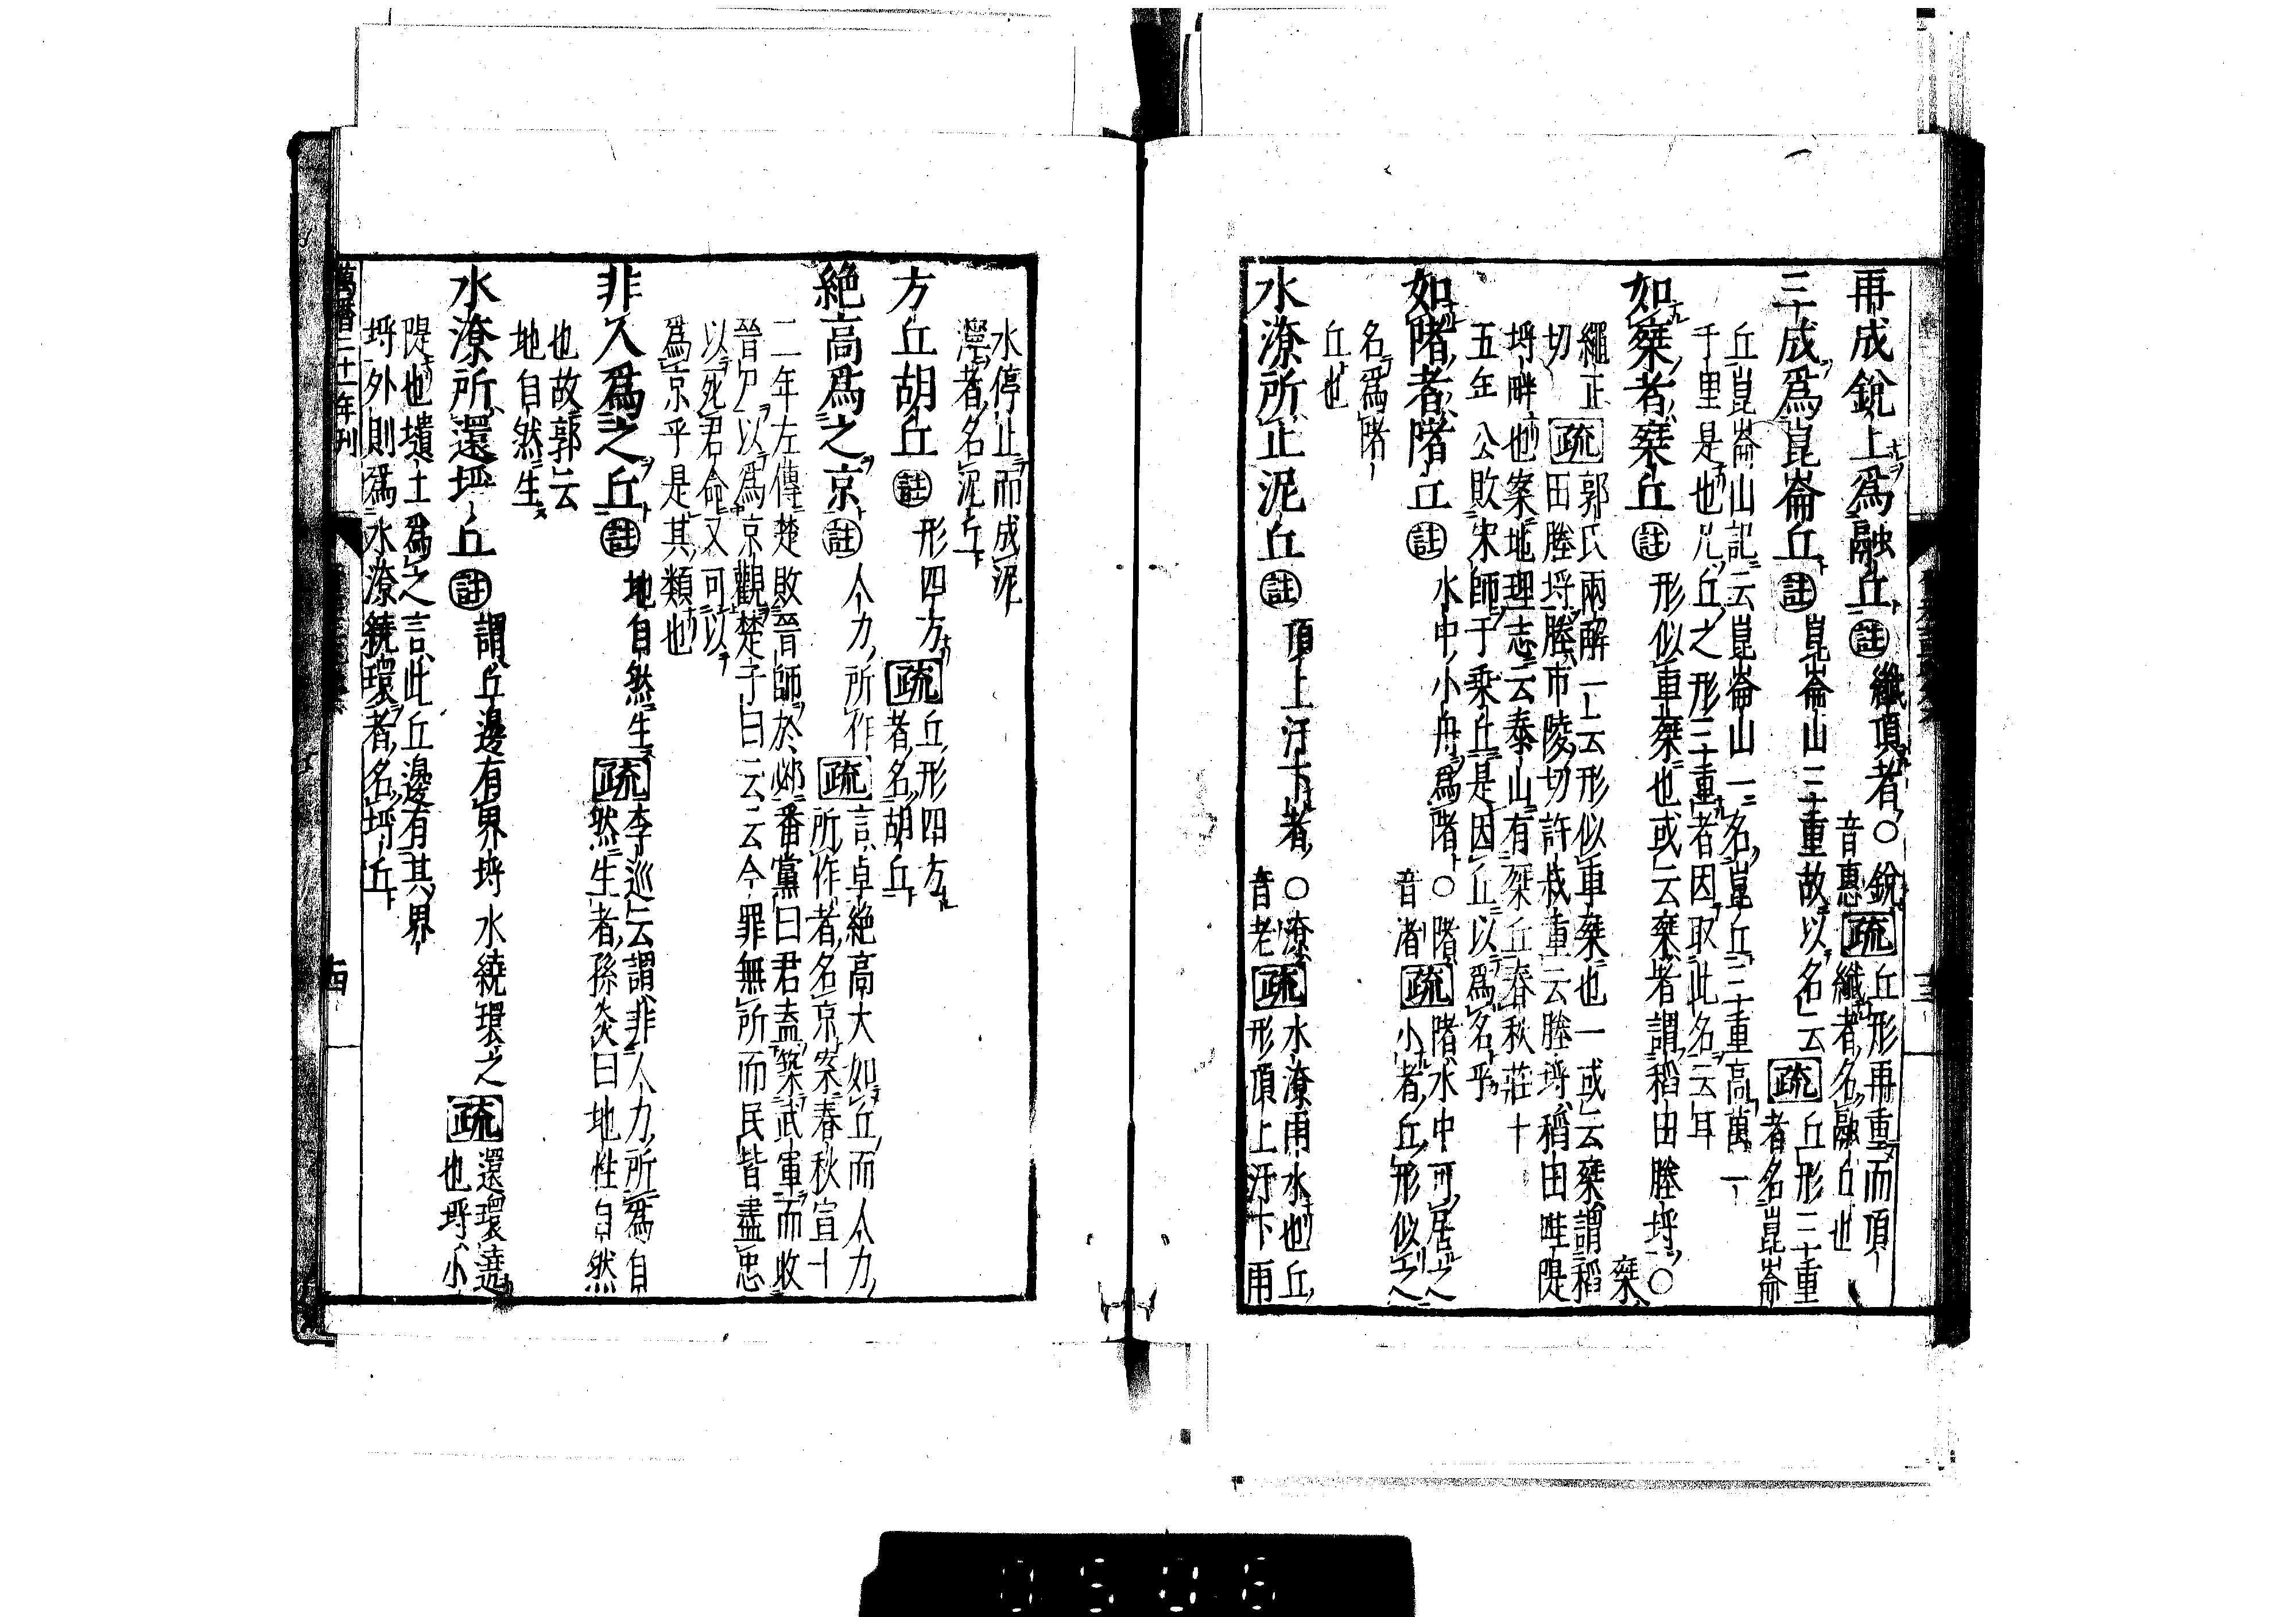 再成銳上爲融丘㊟纖頂者○銳音惠疏丘形再重而頂纖者名融丘也
三成爲崑崙丘㊟崑崙山三重故以名云疏丘形三重者名崑崙
丘崑崙山記云崑崙山一名崑丘三重高萬一
千里是也凡丘之形三重者因取此名云耳
如椉者椉丘㊟形似車椉也或云椉者謂稻田塍埒○椉
繩正切疏郭氏兩解一云形似車椉也一或云椉謂稻
田塍埒塍市陵切許拔重云塍埒稻田畦隄
埒畔也案地理志云泰山有椉丘春秋莊十
五年公敗宋師于乘丘是因丘以爲名乎
如陼者陼丘㊟水中小舟爲陼○陼音渚疏陼水中可居之小者丘形似之
名爲陼
丘也
水潦所止泥丘㊟頂上汙下者○潦音老疏水潦雨水也丘形頂上汙下雨
水停止而成泥
濘者名泥丘
方丘胡丘㊟形四方疏丘形四方者名胡丘
絶高爲之京㊟人力所作疏言卓絶高大如丘而人力所作者名京案春秋宣十
二年左傳楚敗晉師於邲番黨曰君盍築武軍而收
晉尸以爲京觀楚子曰云云今罪無所而民皆盡忠
以死君命又可以
爲京乎是其類也
非人爲之丘㊟地自然生疏李巡云謂非人力所爲自然生者孫炎曰地性自然
也故郭云
地自然生
水潦所還埒丘㊟謂丘邊有界埒水繞環之疏還環遶也埒小
隄也壝土爲之言此丘邊有其界
埒外則爲水潦繞環者名埒丘
萬曆二十一年刊